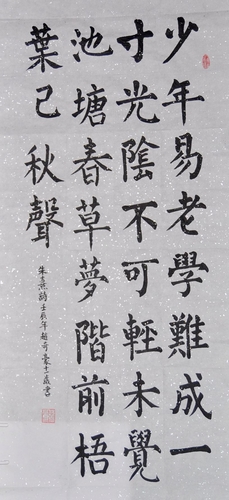 少年易老學難成一
寸光陰不可輕未覺
池塘春草夢階前梧
葉已秋聲
朱熹詩壬辰年趙奇豪歲書